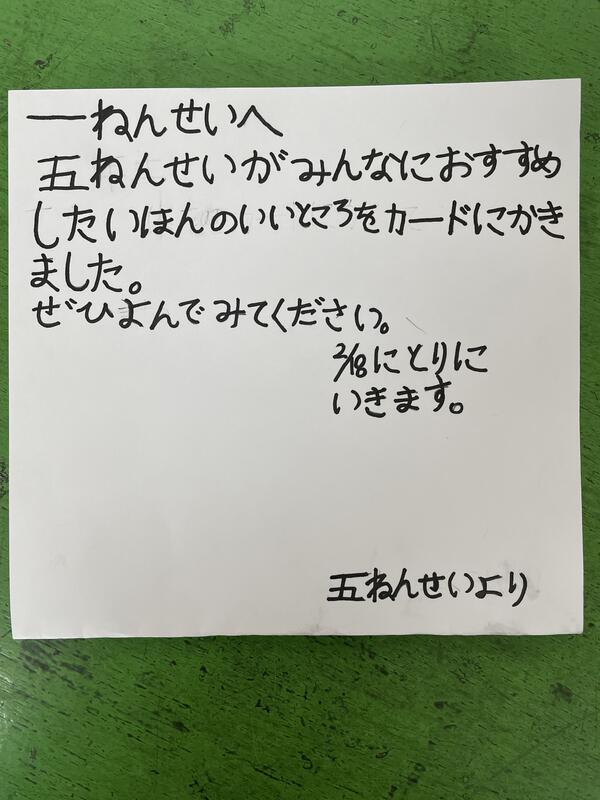 一ねんせいへ
五ねんせいがみんなにおすすめ
したいほんのいいところをカードにかき
ました。
ぜひよんでみてください。
2/18にとりに
いきます。
五ねんせいより